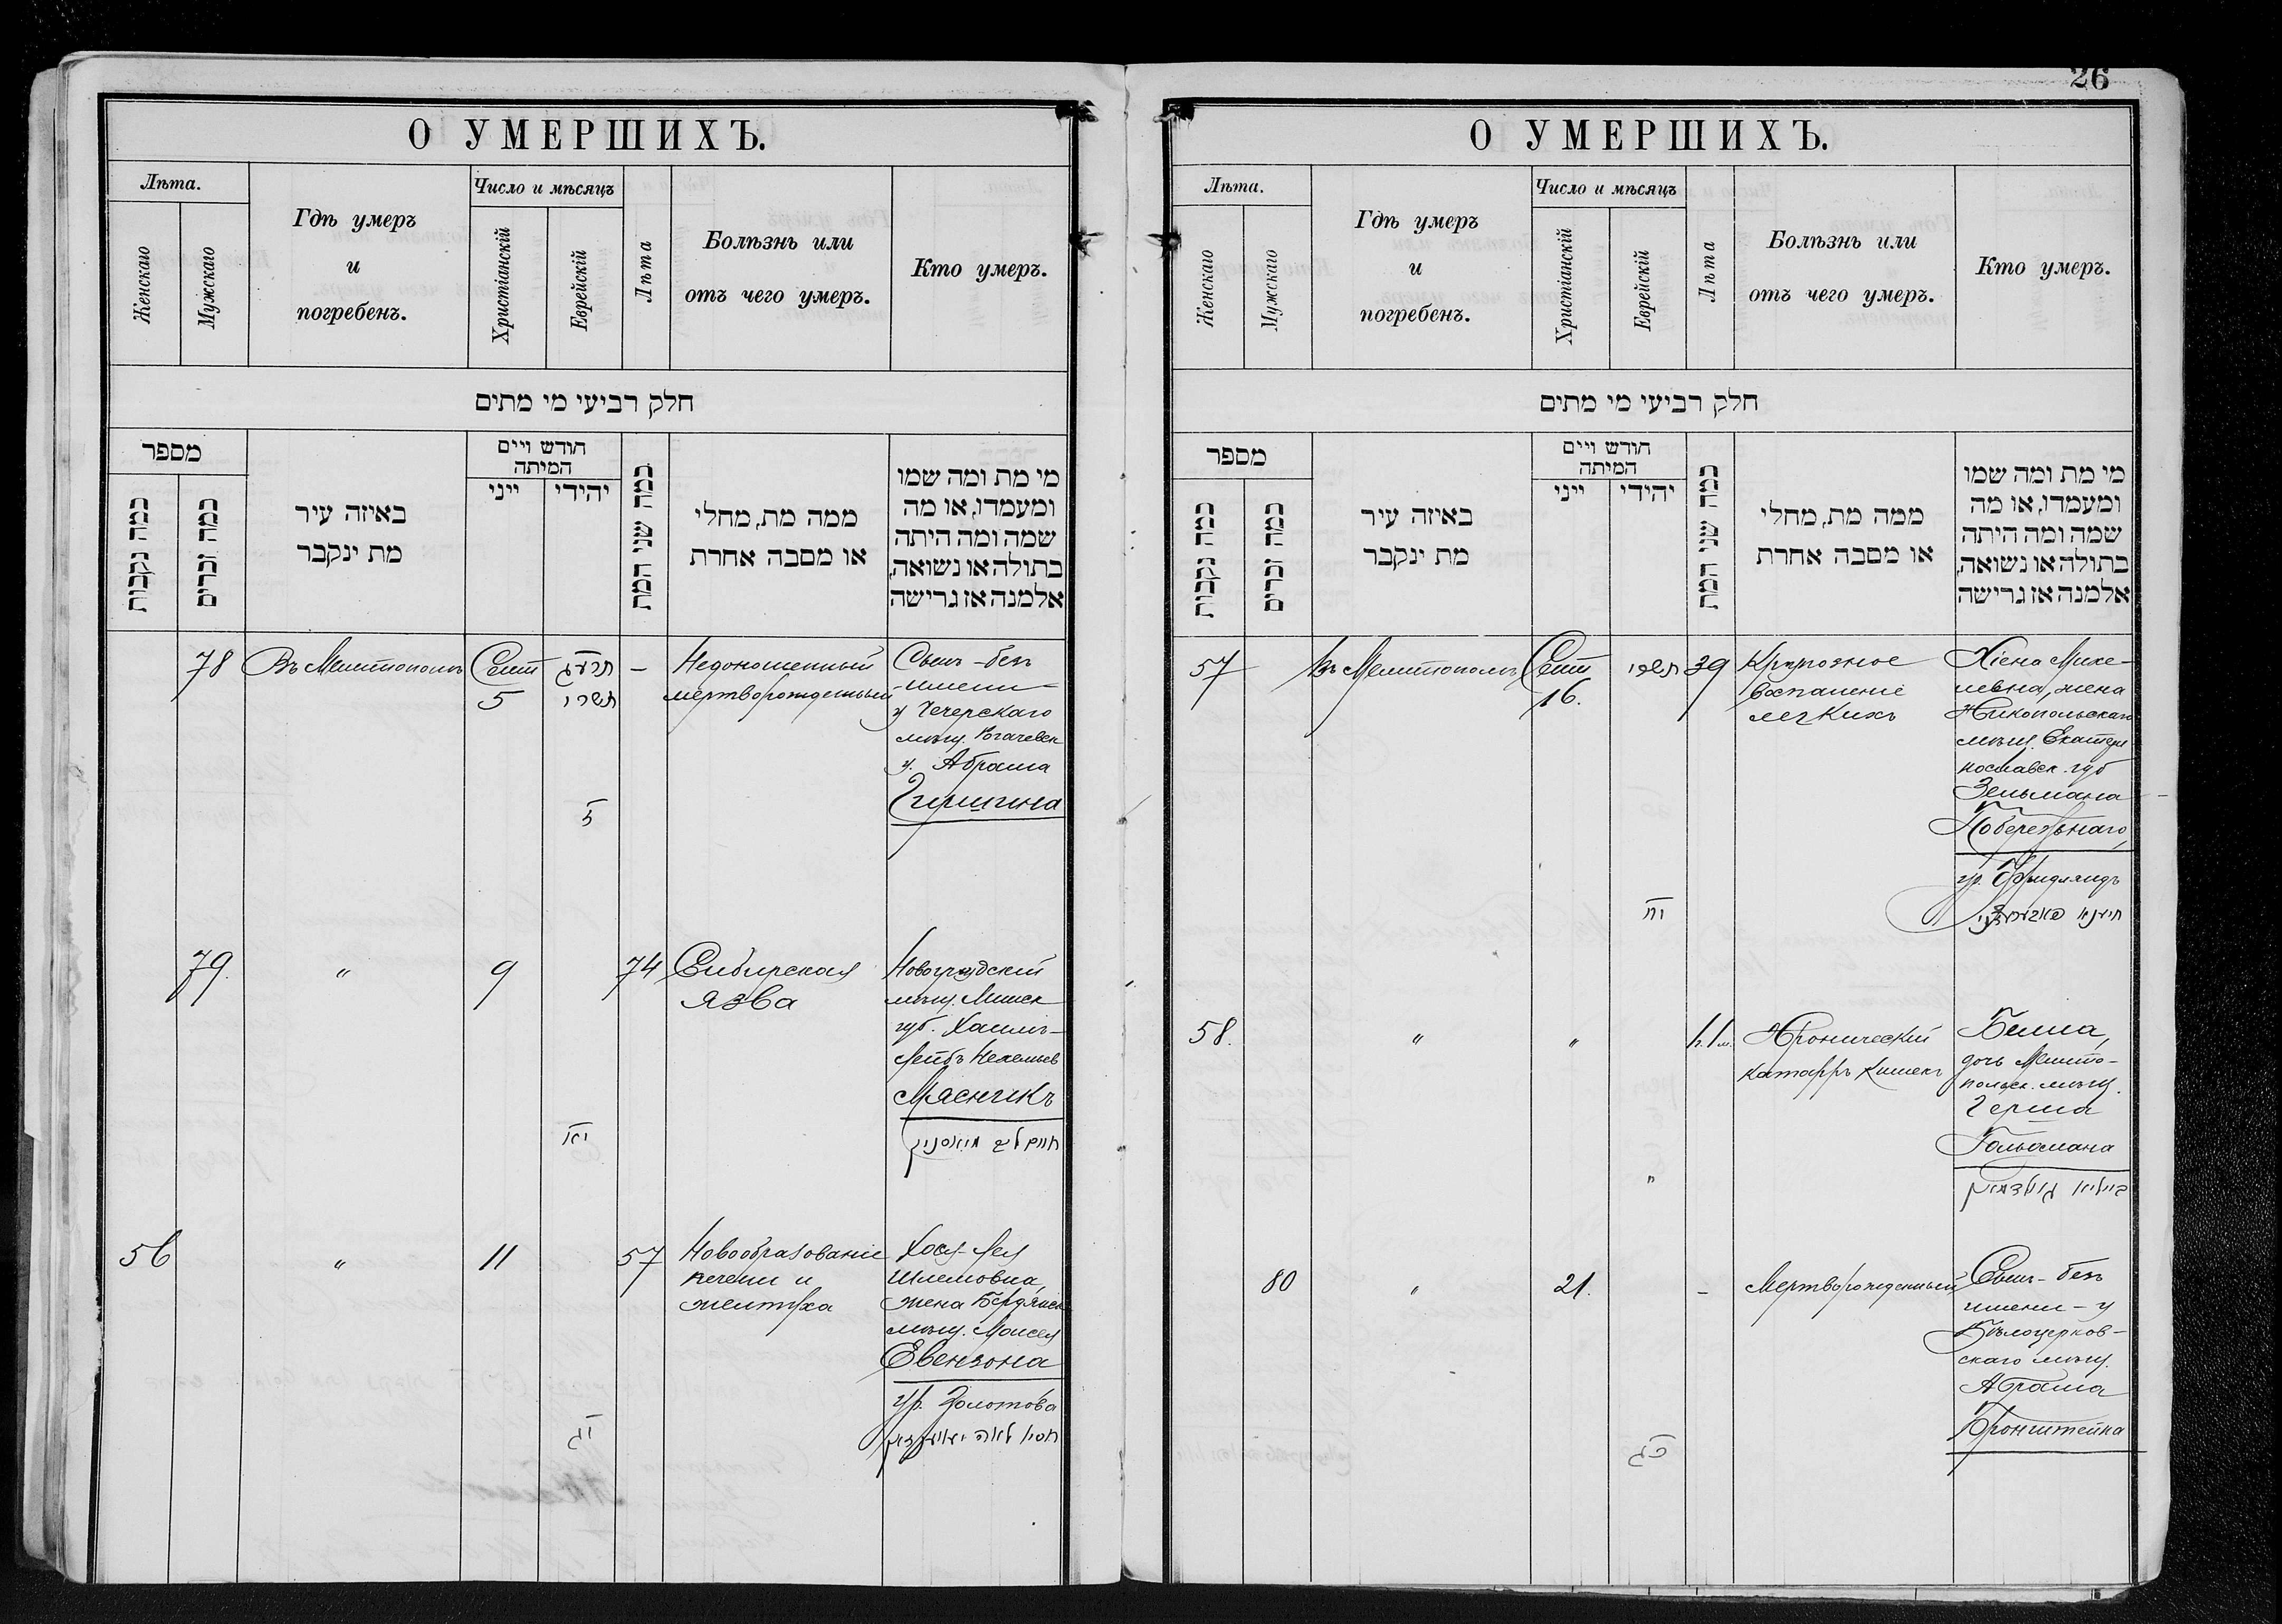 О УМЕРШИХЪ.
Лѣта.
Женскаго
Мужскаго
Гдѣ умеръ
и
погребенъ.
Число и мѣсяцъ
Христіанскій
Еврейскій
Лѣта
Болѣзнь или
отъ чего умеръ.
Кто умеръ.
חלק רביעי מי מתים
מספר
כמה נקבות
כמה זכרים
באיזה עיר
מת ינקבר
חודש ויים
המיתה
ייני
יהידי
כמה שני המת
ממה מת, מחלי
או מסבה אחרת
מי מת ומה שמו
ומעמדו, או מה
שמה ומה היתה
בתולה או נשואה,
אלמנה אז גרישה
78
Въ Мелитополѣ
Сент
5
תרעג
תשרי
5
-
Недоношенный
мертворожденный
Сынъ-безъ
имени-
у Чечерскаго
мѣщ. Рогачевск
у. Абрама
79.
"
9
74
Сибирская
язва
Новогрудскій
мѣщ. Минск
губ. Хаимъ-
Лейбъ Нехемьев
Мясникъ
56
"
11
יג
57
Новообразованіе
печени и
желтуха
Хася-Лея
Шлемовна,
жена Бердянск
мѣщ. Моисея
Евензона
ур. Золотова
26
О УМЕРШИХЪ.
Лѣта.
Женскаго
Мужскаго
Гдѣ умеръ
и
погребенъ.
Число и мѣсяцъ
Христіанскій
Еврейскій
Лѣта
Болѣзнь или
отъ чего умеръ.
Кто умеръ.
חלק רביעי מי מתים
מספר
כמה נקבות
כמה זכרים
באיזה עיר
מת ינקבר
חודש ויים
המיתה
ייני
יהידי
כמה שני המת
ממה מת, מחלי
או מסבה אחרת
מי מת ומה שמו
ומעמדו, או מה
שמה ומה היתה
בתולה או נשואה,
אלמנה אז גרישה
57
Въ Мелитополѣ
Сент
16.
תשרי
39
Крупозное
воспаленіе
легкихъ
Хіена Михе-
левна, жена
Никопольскаго
мѣщ. Екатери
нославск. губ
Зельмана
Побережьнаго,
ур. Фридляндъ
58.
"
"
"
Хроническій
катарръ кишекъ
Бейла,
дочь Мелито-
польск. мѣщ.
Герша
Гольдмана
80
"
21.
כג
-
Мертворожденный
Сынъ-безъ
имени-у
Бѣлоцерков-
скаго мѣщ.
Абрама
Бронштейна